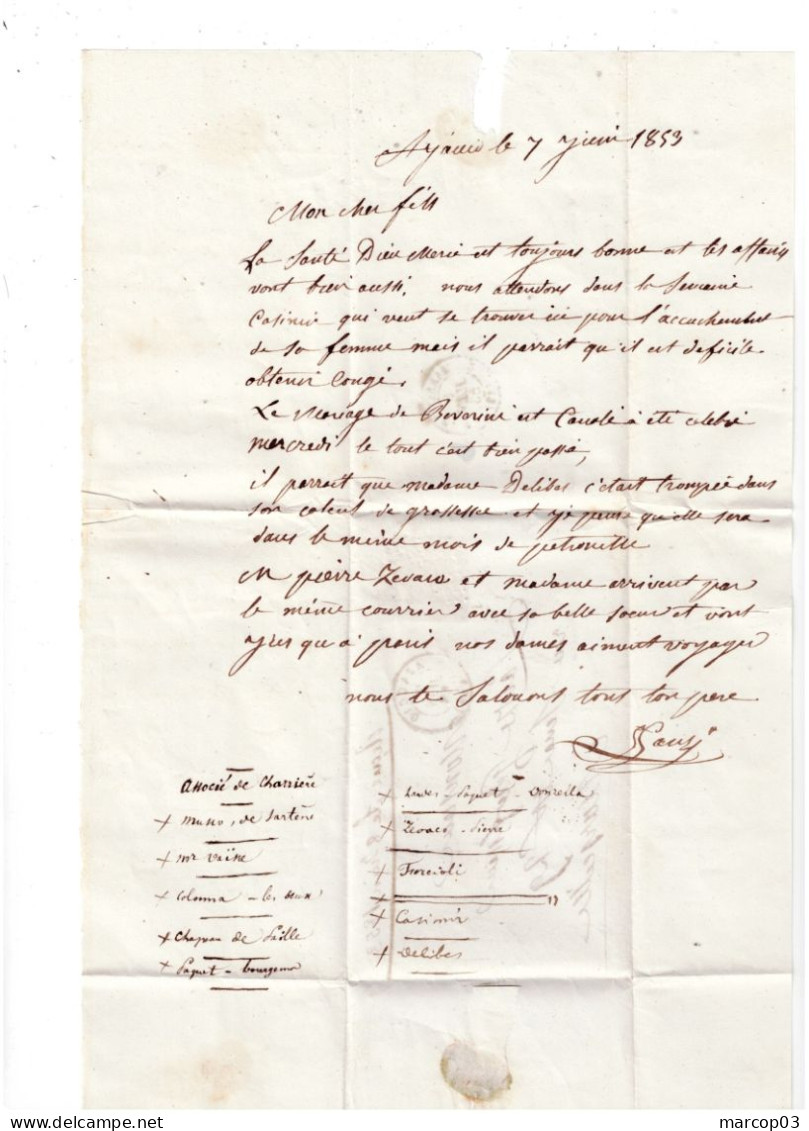 Ajaccio le 7 juin 1853
Mon cher fils
La Santé Dieu Merci est toujours bonne et les affaires
vont bien aussi, nous attendons dans la Semaine
Casimir qui veut se trouver ici pour l'accouchement
de sa femme mais il parrait qu'il est deficile
obtenir congé.
Le Mariage de et à été celebré
mercredi le tout c'est bien passé,
il parrait que madame Delibes c'etait trompée dans
son calcul de grossesse et je pense qu'elle sera
dans le même mois de petronille
M pierre Zevaco et madame arrivent par
le même courrier avec sa belle soeur et vont
jusqu'à paris nos dames aiment voyager
nous te Salouons tous ton pere
Associé de Charriere
+ Musso, de Sartène
+ mr
+ Colonna - les deux
+ Chapeau de Paille
+ Paquet -
+ - Paquet -
+ Zevaco - Pierre
+
+ "
+ Casimir
+ Delibes
MARCOP03